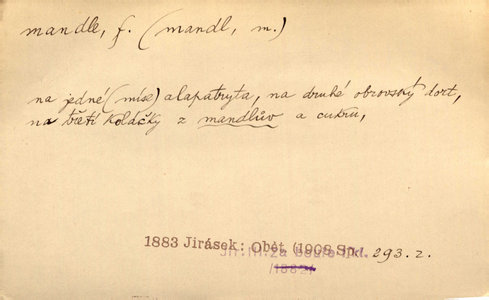 mandle, f. (mandl, m.)
na jedné (míse) alapatryta, na druhé obrovský dort,
na třetí koláčky z mandlův a cukru,
1883 Jirásek: Oběť, (1908 Sp. 293. 2.